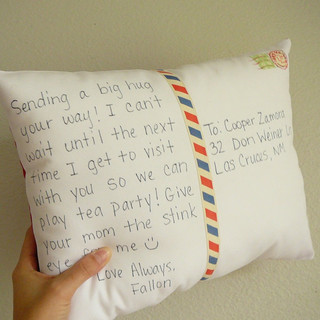 Sending a big hug
your way! I can't
wait until the next
time I get to visit
with you so we can
play tea party! Give
your mom the stink
eye for me
Love Always,
Fallon
To: Cooper Zamora
32 Don Weiner
Las Cruces, NM